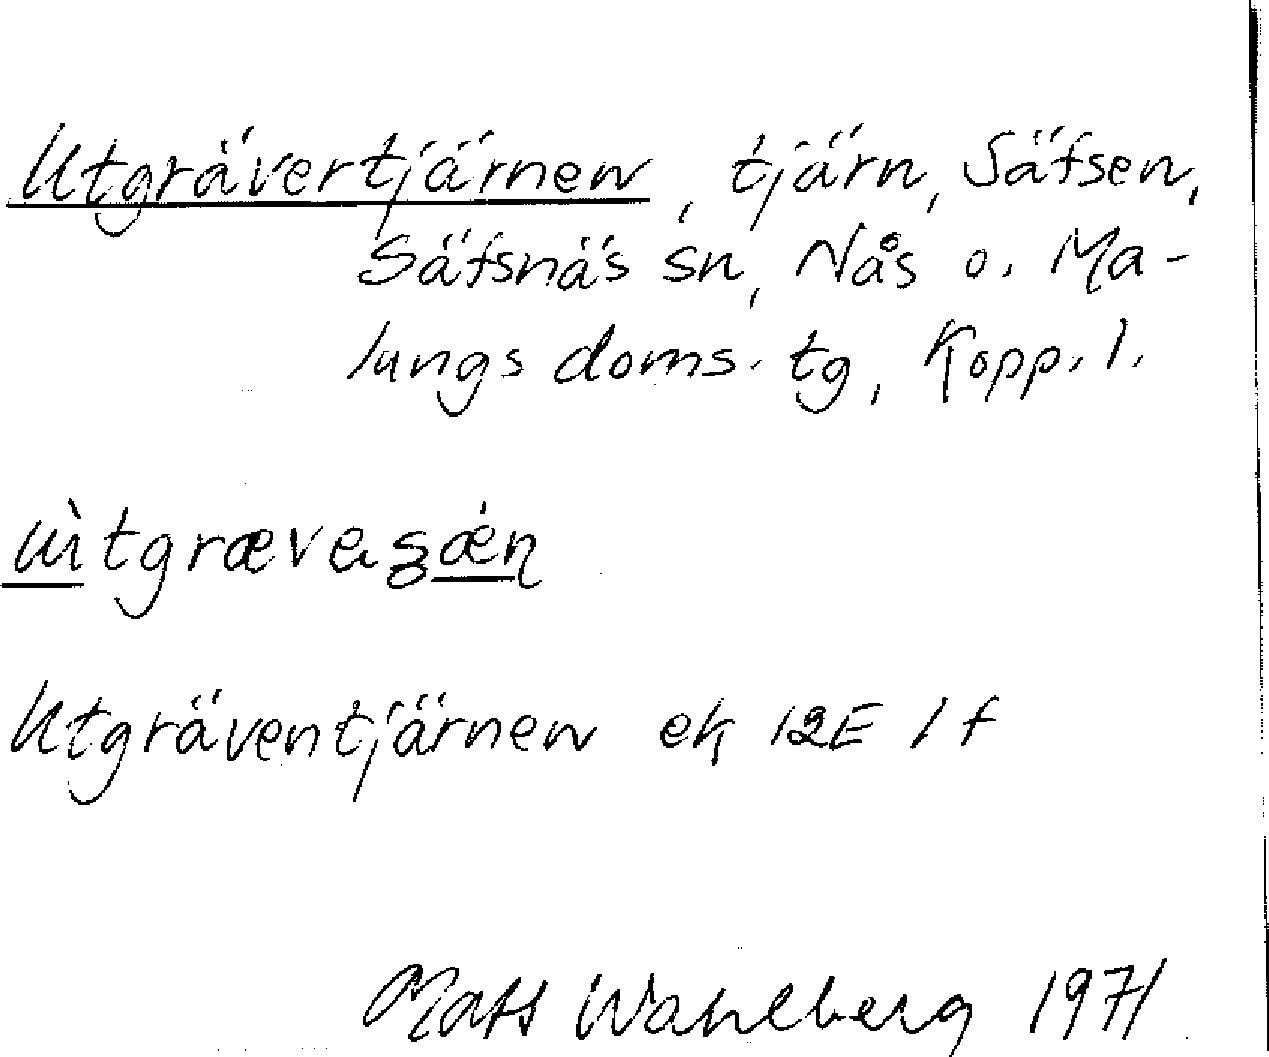 Utgrävertjärnen, tjärn, Säfsen,
Säfsnäs sn, Nås o. Ma-
lungs doms. tg, Kopp. l.
ùtgrævaʂæ̀ɳ
Utgräventjärnen ek 12E 1f
Mats Wahlberg 1971